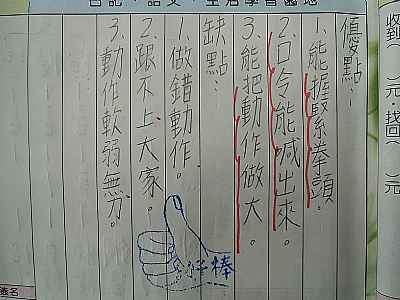 日記、語文、生活學習園地
收到( )元,找回( )元
優點:
1.能握緊拳頭。
2.口令能喊出來。
3.能把動作做大。
缺點:
1.做錯動作。
2.跟不上大家。
3.動作軟弱無力。
好棒
簽名